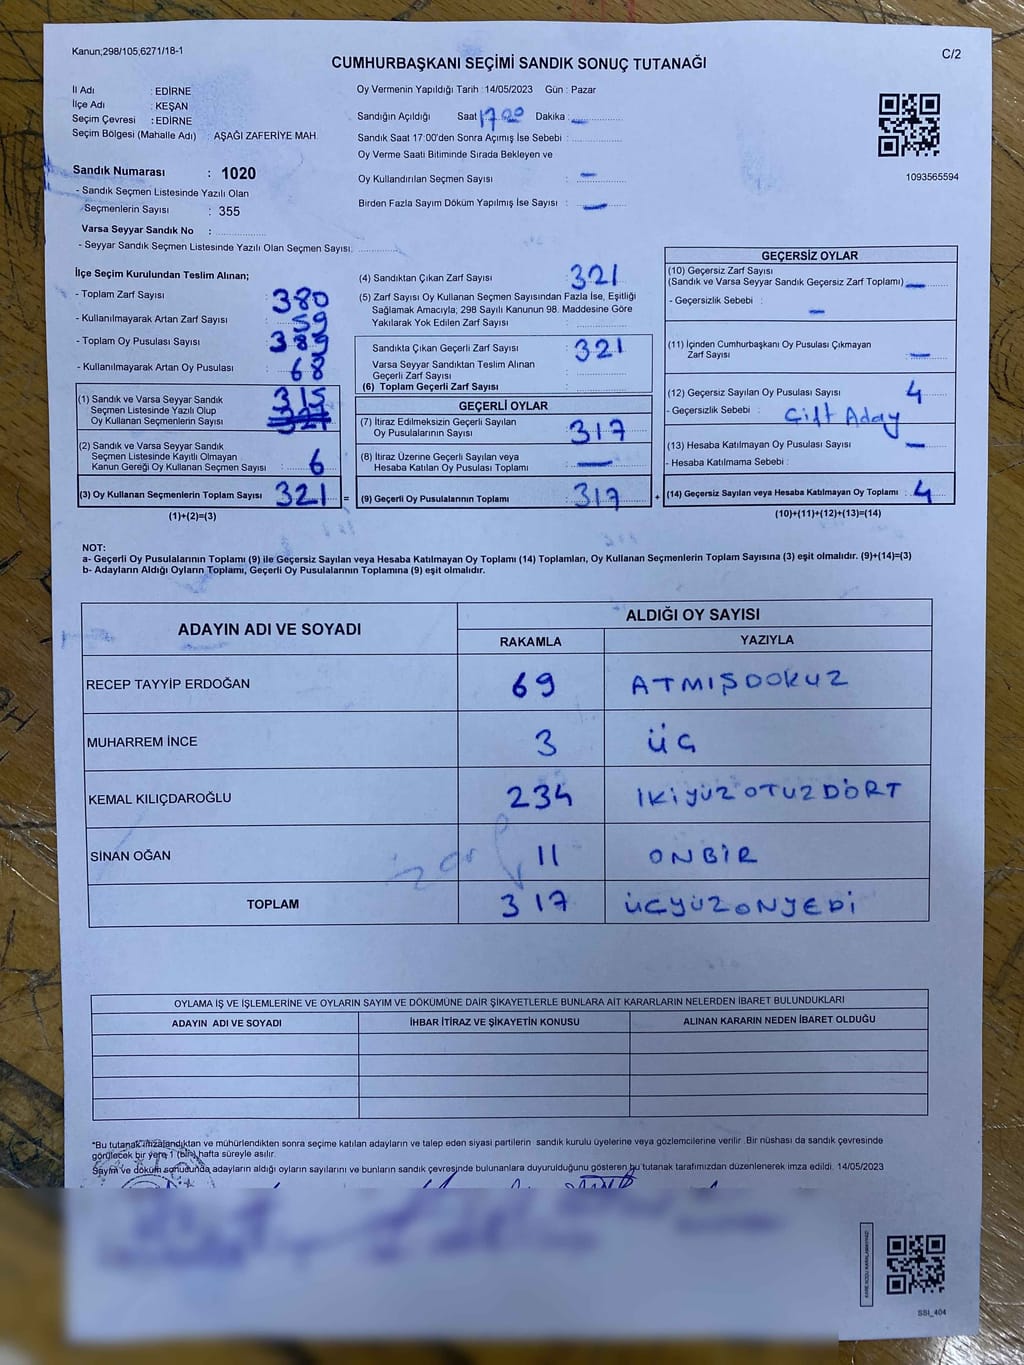 Kanun;298/105,6271/18-1
C/2
CUMHURBAŞKANI SEÇİMİ SANDIK SONUÇ TUTANAĞI
İl Adı : EDİRNE
İlçe Adı : KEŞAN
Seçim Çevresi : EDİRNE
Seçim Bölgesi (Mahalle Adı) : AŞAĞI ZAFERİYE MAH.
Sandık Numarası : 1020
- Sandık Seçmen Listesinde Yazılı Olan
Seçmenlerin Sayısı : 355
Varsa Seyyar Sandık No :
- Seyyar Sandık Seçmen Listesinde Yazılı Olan Seçmen Sayısı:
Oy Vermenin Yapıldığı Tarih : 14/05/2023 Gün : Pazar
Sandığın Açıldığı Saat 17 00 Dakika : —
Sandık Saat 17:00'den Sonra Açımış İse Sebebi :
Oy Verme Saati Bitiminde Sırada Bekleyen ve
Oy Kullandırılan Seçmen Sayısı : —
Birden Fazla Sayım Döküm Yapılmış İse Sayısı : —
1093565594
İlçe Seçim Kurulundan Teslim Alınan;
- Toplam Zarf Sayısı : 380
- Kullanılmayarak Artan Zarf Sayısı : 59
- Toplam Oy Pusulası Sayısı : 389
- Kullanılmayarak Artan Oy Pusulası : 68
(1) Sandık ve Varsa Seyyar Sandık
Seçmen Listesinde Yazılı Olup
Oy Kullanan Seçmenlerin Sayısı
315
321
(2) Sandık ve Varsa Seyyar Sandık
Seçmen Listesinde Kayıtlı Olmayan
Kanun Gereği Oy Kullanan Seçmen Sayısı : 6
(3) Oy Kullanan Seçmenlerin Toplam Sayısı 321 =
(1)+(2)=(3)
(4) Sandıktan Çıkan Zarf Sayısı : 321
(5) Zarf Sayısı Oy Kullanan Seçmen Sayısından Fazla İse, Eşitliği
Sağlamak Amacıyla; 298 Sayılı Kanunun 98. Maddesine Göre
Yakılarak Yok Edilen Zarf Sayısı :
Sandıkta Çıkan Geçerli Zarf Sayısı : 321
Varsa Seyyar Sandıktan Teslim Alınan
Geçerli Zarf Sayısı :
(6) Toplam Geçerli Zarf Sayısı :
GEÇERLİ OYLAR
(7) İtiraz Edilmeksizin Geçerli Sayılan
Oy Pusulalarının Sayısı : 317
(8) İtiraz Üzerine Geçerli Sayılan veya
Hesaba Katılan Oy Pusulası Toplamı : —
(9) Geçerli Oy Pusulalarının Toplamı : 317 +
GEÇERSİZ OYLAR
(10) Geçersiz Zarf Sayısı
(Sandık ve Varsa Seyyar Sandık Geçersiz Zarf Toplamı) —
- Geçersizlik Sebebi : —
(11) İçinden Cumhurbaşkanı Oy Pusulası Çıkmayan
Zarf Sayısı : —
(12) Geçersiz Sayılan Oy Pusulası Sayısı : 4
- Geçersizlik Sebebi : Çift Aday
(13) Hesaba Katılmayan Oy Pusulası Sayısı : —
- Hesaba Katılmama Sebebi :
(14) Geçersiz Sayılan veya Hesaba Katılmayan Oy Toplamı : 4
(10)+(11)+(12)+(13)=(14)
NOT:
a- Geçerli Oy Pusulalarının Toplamı (9) ile Geçersiz Sayılan veya Hesaba Katılmayan Oy Toplamı (14) Toplamları, Oy Kullanan Seçmenlerin Toplam Sayısına (3) eşit olmalıdır. (9)+(14)=(3)
b- Adayların Aldığı Oyların Toplamı, Geçerli Oy Pusulalarının Toplamına (9) eşit olmalıdır.
ADAYIN ADI VE SOYADI ALDIĞI OY SAYISI
RAKAMLA YAZIYLA
RECEP TAYYİP ERDOĞAN 69 ATMIŞDOKUZ
MUHARREM İNCE 3 ÜÇ
KEMAL KILIÇDAROĞLU 234 İKİYÜZOTUZDÖRT
SİNAN OĞAN 11 ONBİR
TOPLAM 317 ÜÇYÜZONYEDİ
OYLAMA İŞ VE İŞLEMLERİNE VE OYLARIN SAYIM VE DÖKÜMÜNE DAİR ŞİKAYETLERLE BUNLARA AİT KARARLARIN NELERDEN İBARET BULUNDUKLARI
ADAYIN ADI VE SOYADI İHBAR İTİRAZ VE ŞİKAYETİN KONUSU ALINAN KARARIN NEDEN İBARET OLDUĞU
*Bu tutanak imzalandıktan ve mühürlendikten sonra seçime katılan adayların ve talep eden siyasi partilerin sandık kurulu üyelerine veya gözlemcilerine verilir. Bir nüshası da sandık çevresinde
görülecek bir yere 1 (bir) hafta süreyle asılır.
Sayım ve döküm sonucunda adayların aldığı oyların sayılarını ve bunların sandık çevresinde bulunanlara duyurulduğunu gösteren bu tutanak tarafımızdan düzenlenerek imza edildi. 14/05/2023
SSI_404